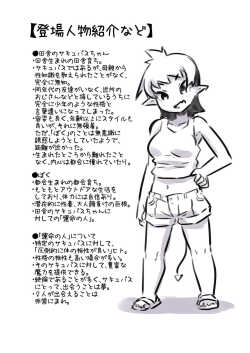 【登場人物紹介など】
●田舎のサキュバスちゃん
・田舎生まれの田舎育ち。
・サキュバスではあるが、母親から
性知識を教えられたことがなく、
完全に無知。
・同年代の友達がいなく、近所の
おじさんなどと接しているうちに
完全に少年のような性格と
言葉遣いになってしまった。
・容姿も良く、年齢以上にスタイルも
良いが、それに無頓着。
ただ、「ぼく」のことは無意識に
誘惑しようとしていたようで、
距離が近かった。
・生まれたところから離れたこと
なく、内心は都会に憧れていたり。
●ぼく
・都会生まれの都会育ち。
・もともとアウトドアな生活を
しており、体力には自信あり。
・潜在的に性豪、大人顔負けの巨根。
・田舎のサキュバスちゃんに
対しての「運命の人」。
●「運命の人」について
・特定のサキュバスに対して、
「圧倒的に体の相性が良い」ヒト。
・性格の相性も良い場合が多い。
・そのサキュバスに対して、豊富な
魔力を提供できる。
・絶倫であることが多く、サキュバス
にとって、出会うことは夢。
・2人が出会えることは
非常にまれ。